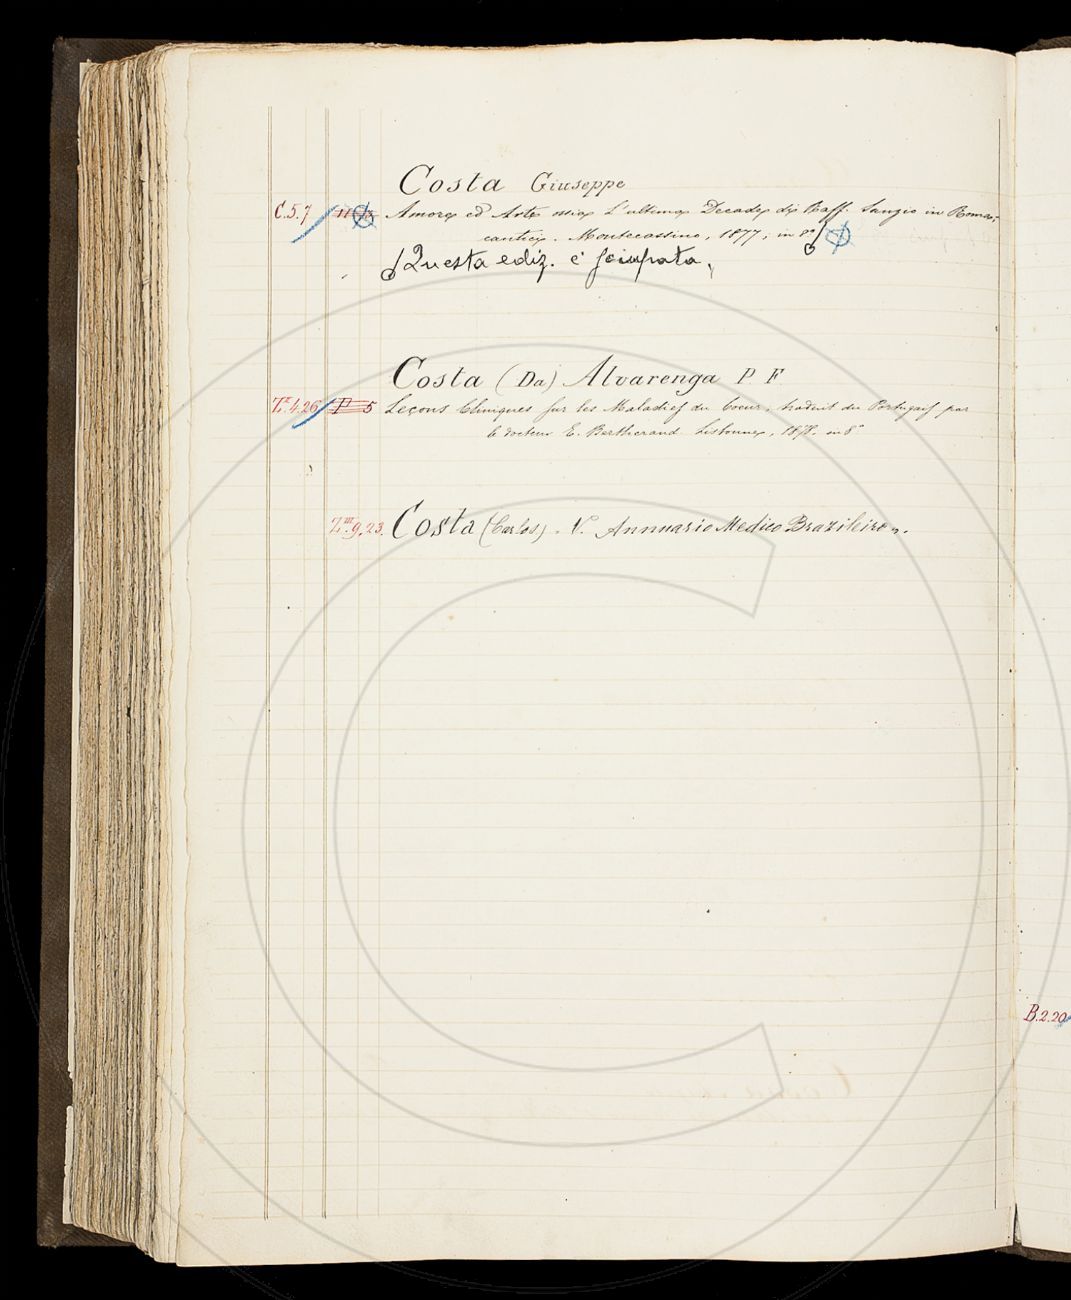 Costa Giuseppe
C.5.7 Amore ed Arte ossia L'ultima Decade di Raff. Sanzio in Roma,
cantica. Montecassino, 1877, in 8°
Questa ediz. è sciupata.
Costa (Da) Alvarenga P F
4.26 P 5 Leçons Cliniques sur les Maladies du Coeur, traduit du Portugais par
le docteur E. Bertherand Lisbonne, 1878. in 8°
Z.III.9.23. Costa (Carlos). V. Annuario Medico Brazileiro.
B.2.20